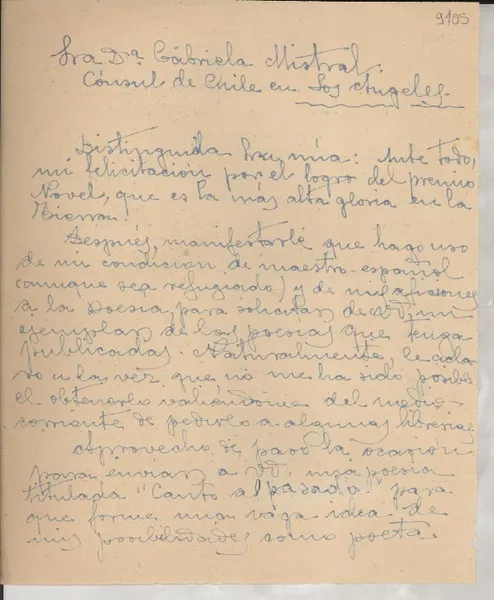 9105
Sra Dª. Gabriela Mistral.
Cónsul de Chile en Los Angeles.
Distinguida Sra mia: Ante todo,
mi felicitación por el logro del premio
Novel, que es la más alta gloria en la
Tierra.
Después, manifestarle que hago uso
de mi condición de maestro español
(aunque sea refugiado) y de mis aficiones
a la poesia, para solicitar de VD, un
ejemplar de las poesias que tenga
publicadas. Naturalmente, le acla
ro a la vez, que no me ha sido posible
el obtenerlo valiendome del medio
corriente de pedirlo a algunas librerias
Aprovecho de paso la ocasión
para enviar a VD. una poesia
titulada "Canto al pasado" para
que forme una vaga idea de
mis posibilidades como poeta.